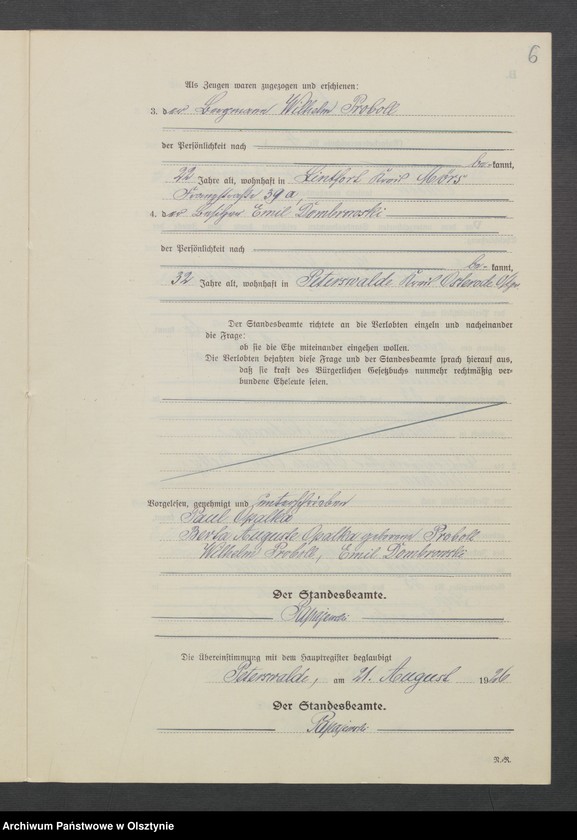 6
Als Zeugen waren zugezogen und erschienen:
3. der Bergmann Wilhelm Proboll
der Persönlichkeit nach
be- kannt,
22 Jahre alt, wohnhaft in Lintfort Kreis Mörs
Franzstraße 39a,
4. der Besitzer Emil Dombrowski
der Persönlichkeit nach
be- kannt,
32 Jahre alt, wohnhaft in Peterswalde Kreis Osterode O/Pr
Der Standesbeamte richtete an die Verlobten einzeln und nacheinander
die Frage:
ob sie die Ehe miteinander eingehen wollen.
Die Verlobten bejahten diese Frage und der Standesbeamte sprach hierauf aus,
daß sie kraft des Bürgerlichen Gesetzbuchs nunmehr rechtmäßig ver-
bundene Eheleute seien.
Vorgelesen, genehmigt und unterschrieben
Paul Opalka
Berta Auguste Opalka geborene Proboll
Wilhelm Proboll, Emil Dombrowski
Der Standesbeamte.
Die Übereinstimmung mit dem Hauptregister beglaubigt
Peterswalde, am 21. August 1926
Der Standesbeamte.
R.-R.
Archiwum Państwowe w Olsztynie